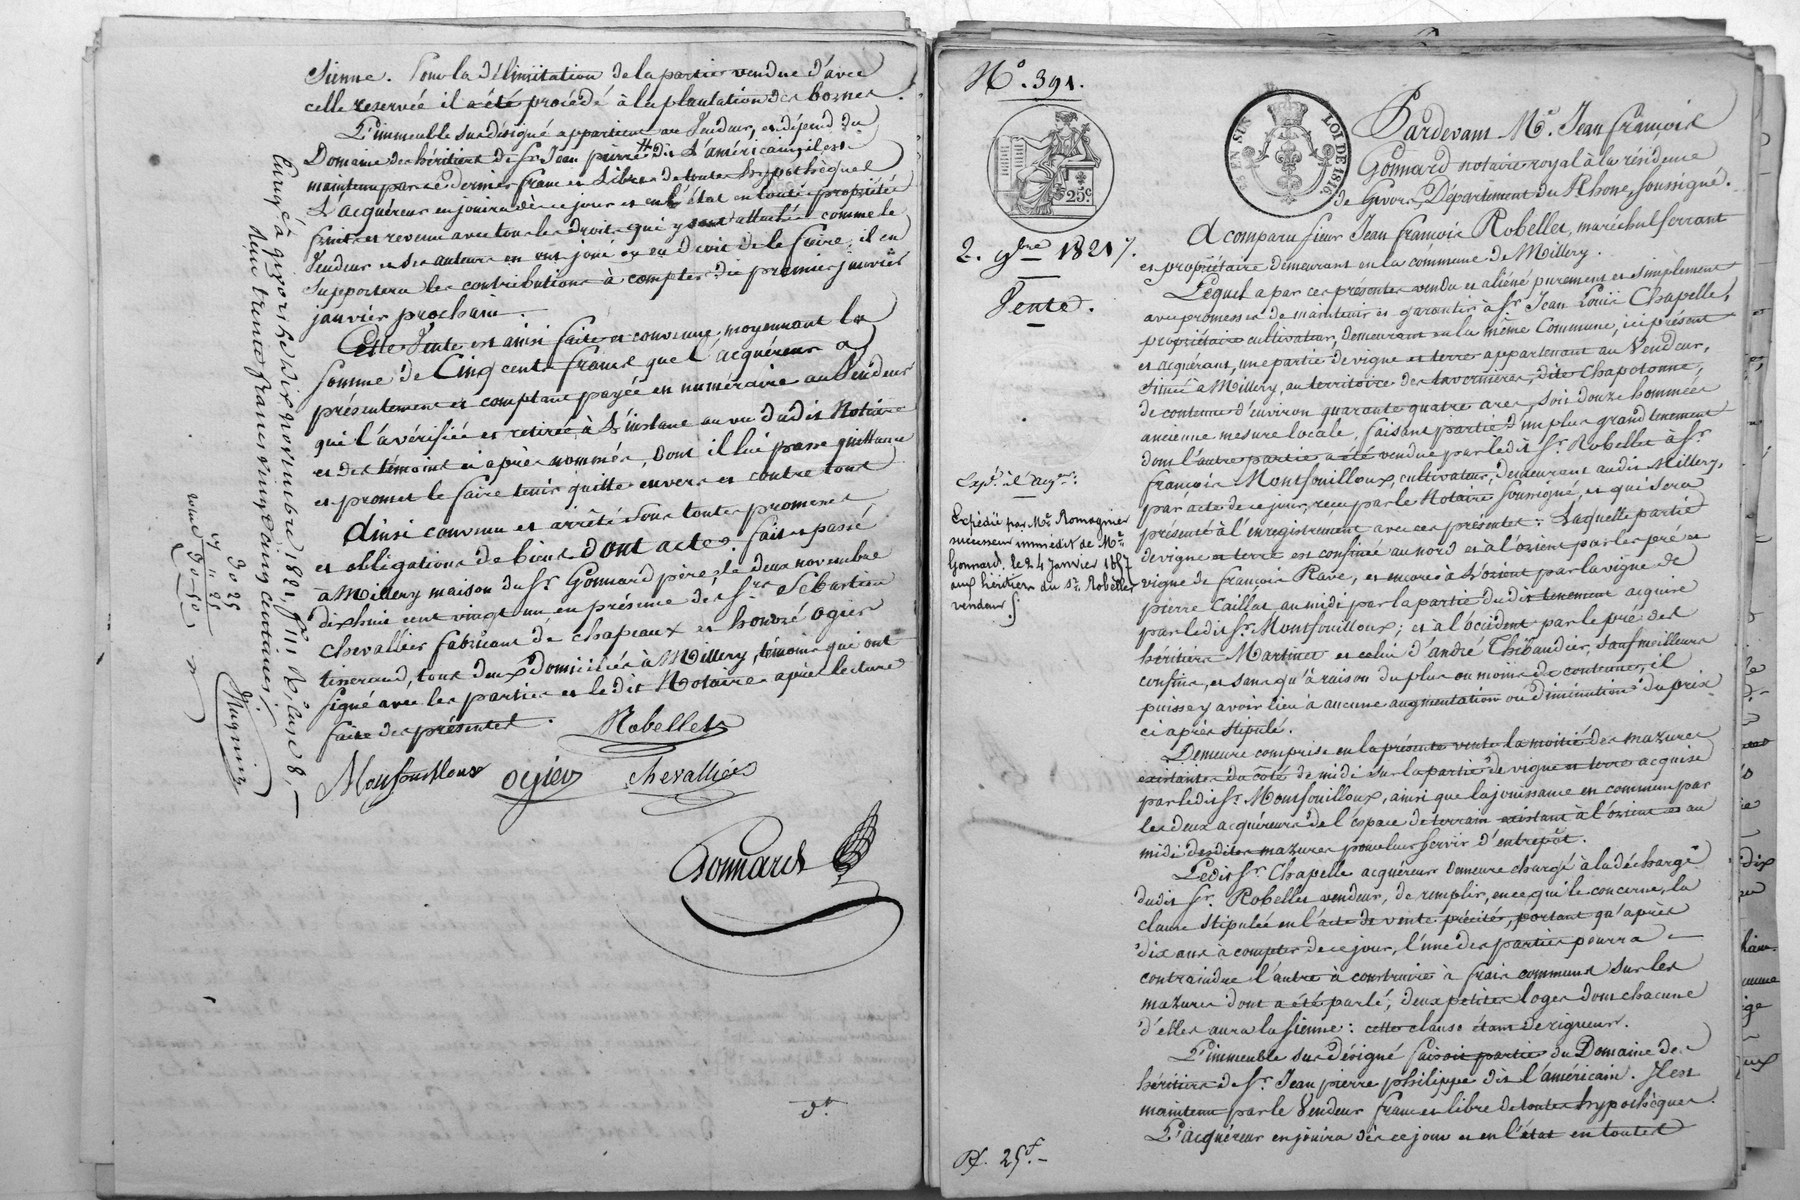 sienne. Pour la délimitation de la partie vendue d'avec
celle reservée il a été procédé à la plantation des bornes.
L'immeuble sus désigné appartient au Vendeur, et dépend du
Domaine des héritiers de Sr. Jean pierre dit L'américain, il est
maintenu par ce dernier franc et libre de toutes hypothèques
L'acquéreur en jouira dès ce jour et en l'état en toute propriété
fruits et revenu avec tous les droits qui y sont attachés comme le
Vendeur et ses auteurs en ont joui ou eu Droit de le faire, il en
supportera les contributions à compter du premier janvier
janvier prochain.
Cette Vente est ainsi faite et convenue, moyennant la
somme de Cinq cents francs que l'acquéreur a
présentement et comptant payée en numéraire au Vendeur
qui l'a vérifiée et retirée à L'instant au vu dudit Notaire
et des témoins ci après nommés, Dont il lui passe quittance
et promet le faire tenir quitte envers et contre tous
Ainsi convenu et arrêté sous toutes promesses,
et obligations de biens Dont acte. fait et passé
à Millery maison du Sr. Gonnard père, le deux novembre
dix huit cent vingt un en présence de Srs. Sébastien
Chevallier fabricant de chapeaux et honoré Ogier
tisserand, tous deux Domiciliés à Millery, témoins qui ont
signé avec les parties et le dit Notaire après lecture
faite des présentes.
Robellet
Montfouilloux ogier chevallier
Gonnard
Enreg.é à givors le dix Novembre 1821, f.° 111 R.° case 8,
Reçu trente francs vingt cinq centimes
30 25
Magnin
N.° 391.
25 c.
2. 9bre 1821.
Vente.
Exp.é à l'acq.r
Expédié par Me. Romagnier
successeur immédiat de Me.
Gonnard, le 24 Janvier 1857
aux héritiers du Sr. Robellet
vendeur
R. 25 f.
EN SUS
LOI DE 1816
Pardevant Me. Jean françois
Gonnard notaire royal à la résidence
de Givors, Département du Rhône, soussigné.
A comparu sieur Jean françois Robellet, maréchal ferrant
et propriétaire demeurant en la commune de Millery.
Lequel a par ces présentes vendu et aliéné purement et simplement
avec promesses de maintenir et garantir à Sr. Jean Louis Chapelle,
propriétaire cultivateur, demeurant en la même Commune, ici présent
et acquérant, une partie de vigne et terre appartenant au Vendeur,
située à Millery, au territoire des Invernières, dite Chapotonne,
de contenue d'environ quarante quatre ares, soit douze hommées
ancienne mesure locale, faisant partie d'un plus grand tenement
dont l'autre partie a été vendue par le dit Sr. Robellet à Sr.
françois Montfouilloux, cultivateur, demeurant audit Millery,
par acte de ce jour, reçu par le Notaire soussigné, et qui sera
présenté à l'enregistrement avec ces présentes: Laquelle partie
de vigne et terre est confinée au nord et à l'orient par les pré et
vigne de françois Rave, et encore à L'orient par la vigne de
pierre Caillat au midi par la partie du dit tenement acquise
par le dit Sr. Montfouilloux; et à l'occident par le pré des
héritiers Martinet et celui d'andré Thibaudier, sauf meilleurs
confins, et sans qu'à raison du plus ou moins de contenue, il
puisse y avoir lieu à aucune augmentation ou diminution du prix
ci après stipulé.
Demeure comprise en la présente vente la moitié des mazures
existantes du côté de midi sur la partie de vigne et terre acquise
par ledit Sr. Montfouilloux, ainsi que la jouissance en commun par
les deux acquéreurs de l'espace de terrain existant à l'orient et au
midi desdites mazures pour leur servir d'entrepôt.
Ledit Sr. Chapelle acquéreur demeure chargé à la décharge
dudit Sr. Robellet vendeur, de remplir, en ce qui le concerne, la
clause stipulée en l'acte de vente précité, portant qu'après
dix ans à compter de ce jour, l'une des parties pourra
contraindre l'autre à construire à frais communs sur les
mazures dont a été parlé, deux petites loges dont chacune
d'elles aura la sienne: cette clause étant de rigueur.
L'immeuble sus désigné faisoit partie du Domaine des
héritiers de Sr. Jean pierre philippe dit l'américain. Il est
maintenu par le Vendeur franc et libre de toutes hypothèques.
L'acquéreur en jouira dès ce jour et en l'état en toutes